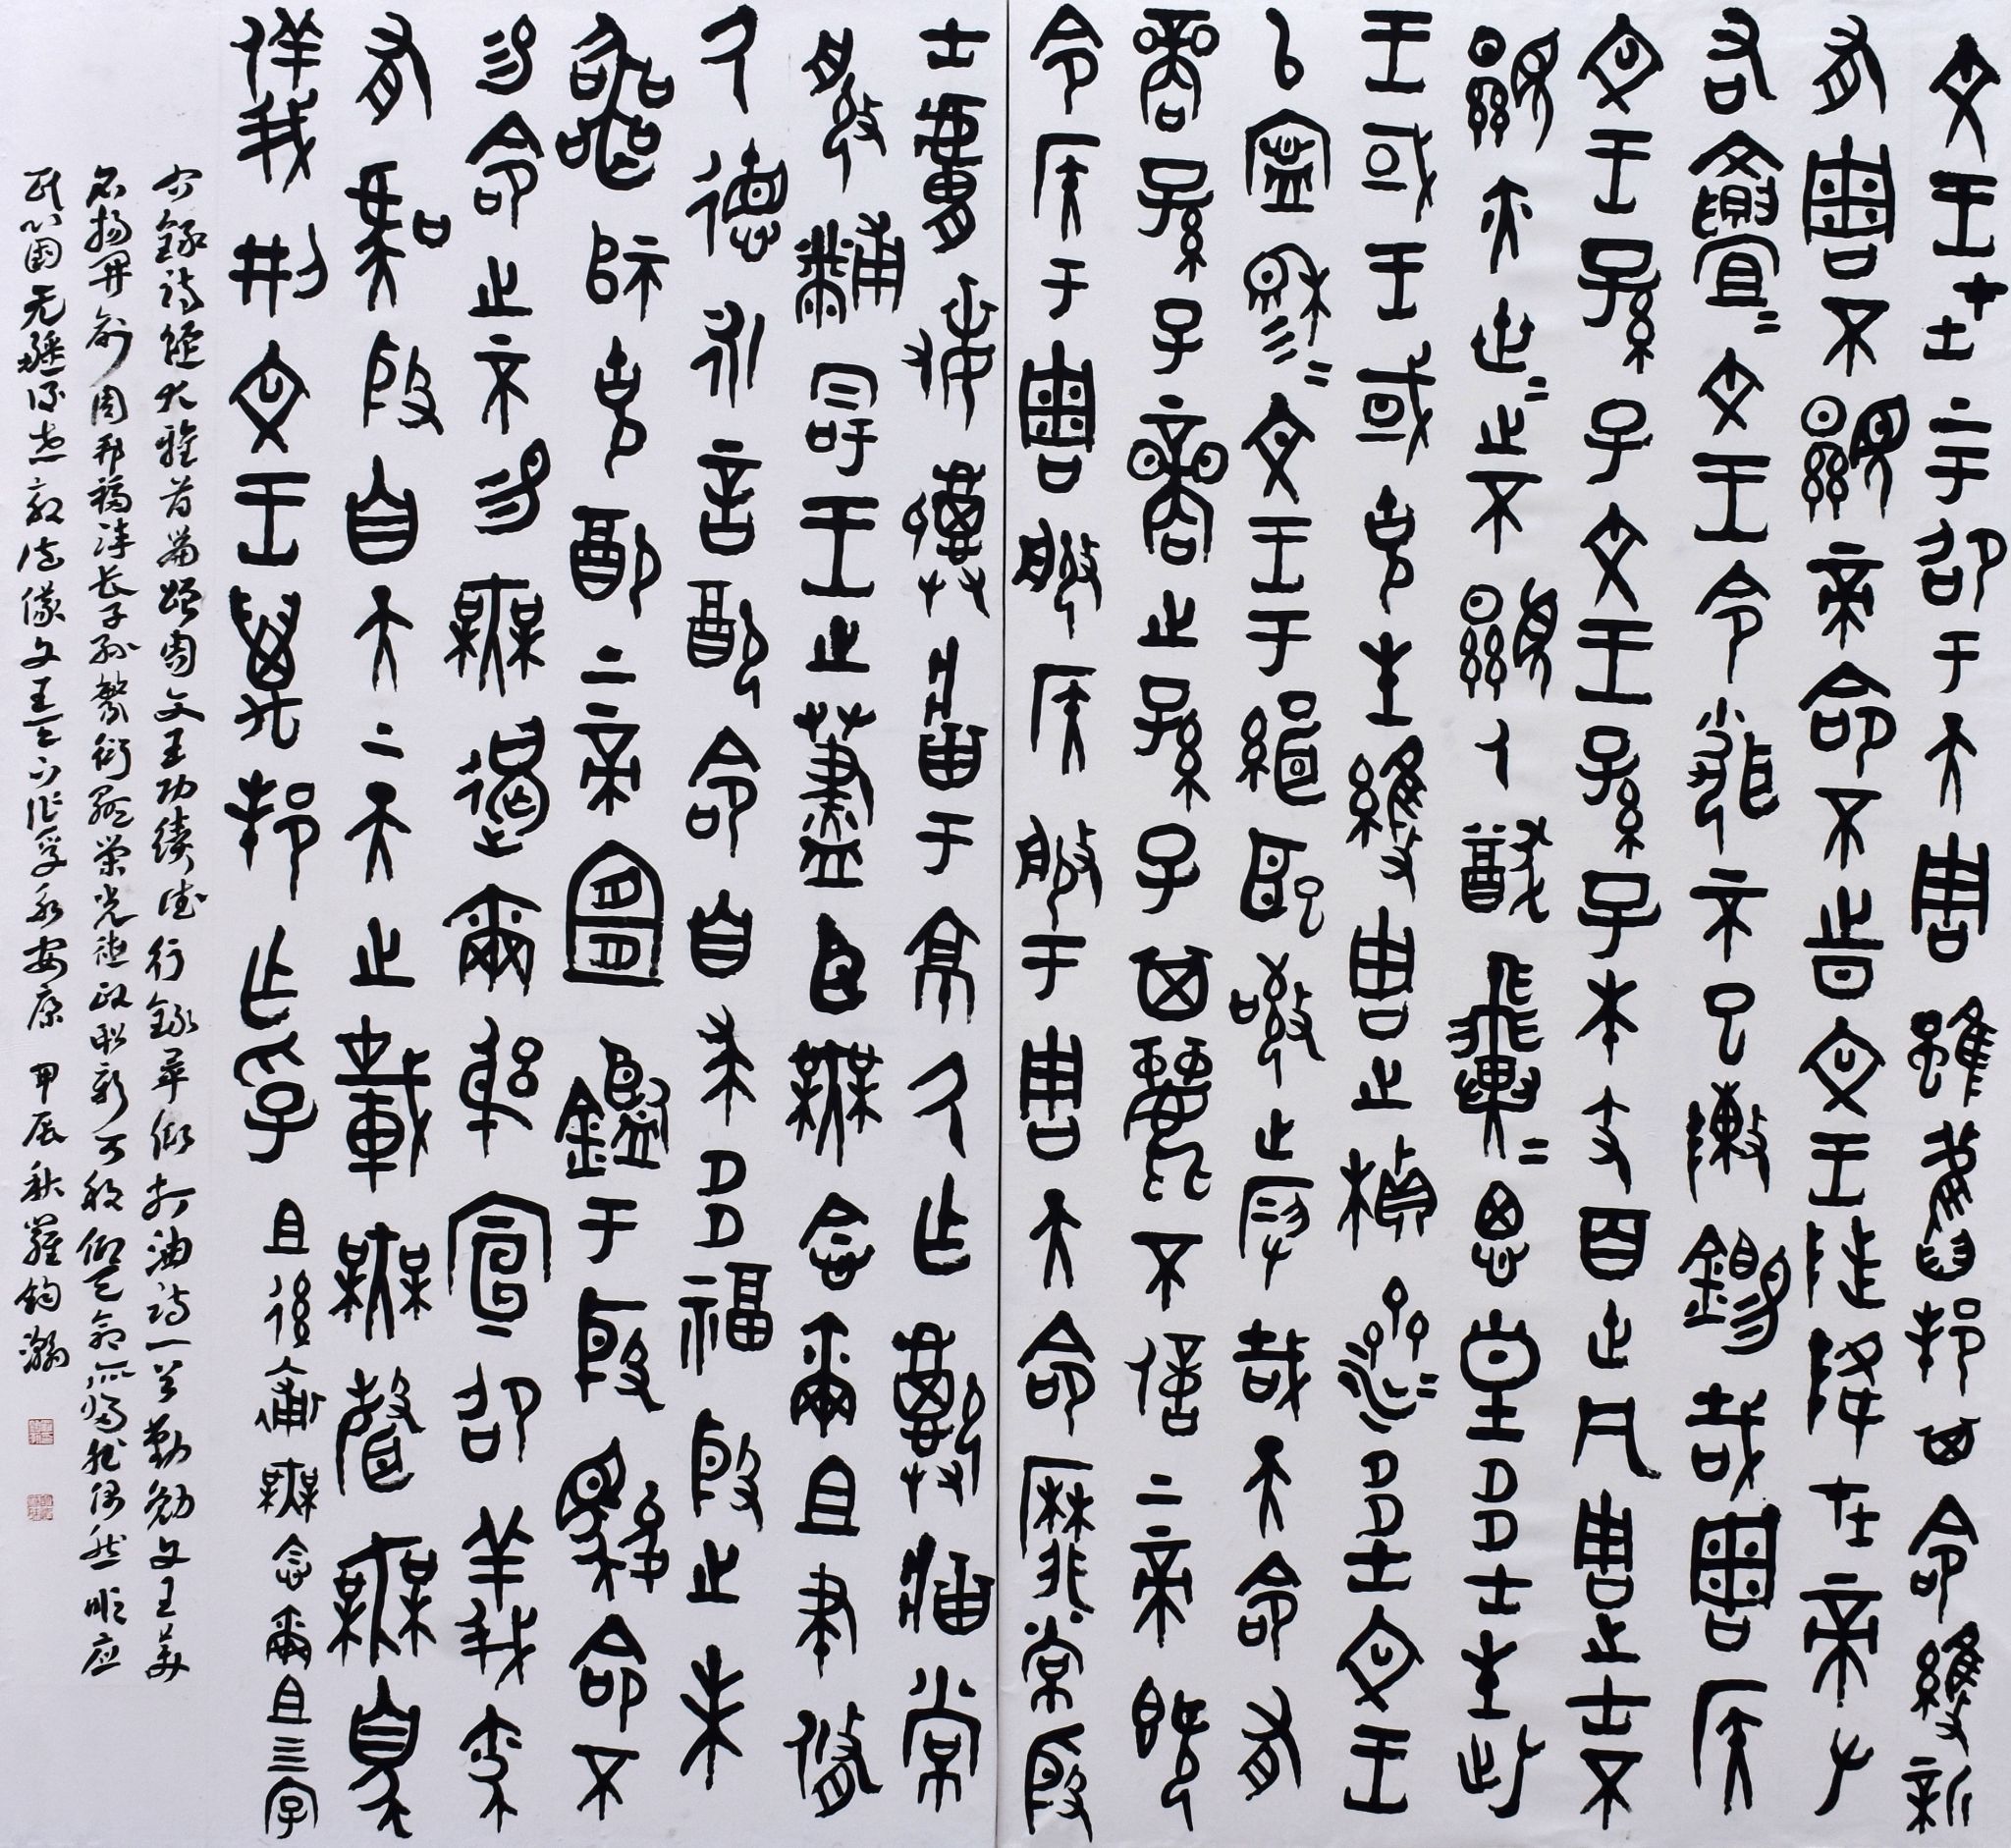 文王在上于昭于天周雖舊邦其命維新
有周不顯帝命不時文王陟降在帝左
右亹=文王令聞不已陳錫哉周侯
文王孫子文王孫子本支百世凡周之士不
顯亦世=之不顯厥猶翼=思皇多士生此
王國王國克生維周之楨濟=多士文王
以寧穆=文王于緝熙敬止假哉天命有
商孫子商之孫子其麗不億上帝既
命侯于周服侯服于周天命靡常殷
士膚敏祼將于京厥作祼將常
服黼冔王之藎臣無念爾且聿修
厥德永言配命自求多福殷之未
喪師克配上帝宜鑒于殷駿命不
易命之不易無遏爾躬宣昭義問
有虞殷自天上天之載無聲無臭
儀刑文王萬邦作孚 且後補無念爾且三字
右錄诗經大雅首篇頌周文王功績德行錄畢打油诗一首勤勉文王美
名揚開創周邦福泽长子孙繁衍顯荣光德政維新万般仰天命所归非偶然順应
民心国无疆敬法儀文王作孚永安康 甲辰秋羅鈞瀚